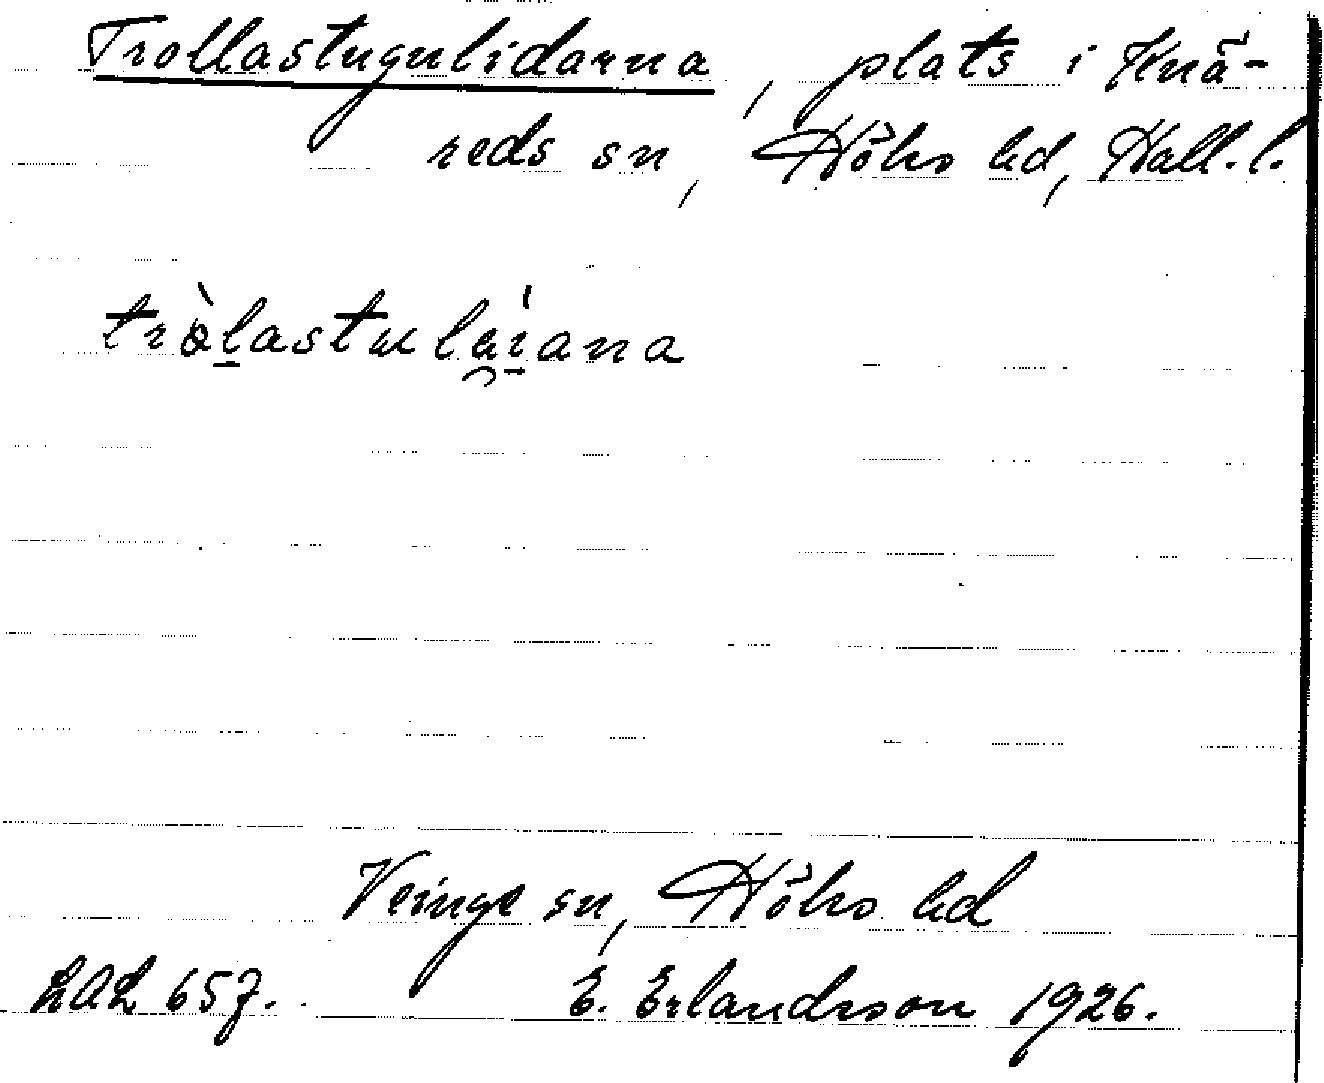 Trollastugulidarna, plats i Knä-
reds sn, Höks hd, Hall. l.
tròlastulaíana
Veinge sn, Höks hd
LAL 657. E. Erlandsson 1926.